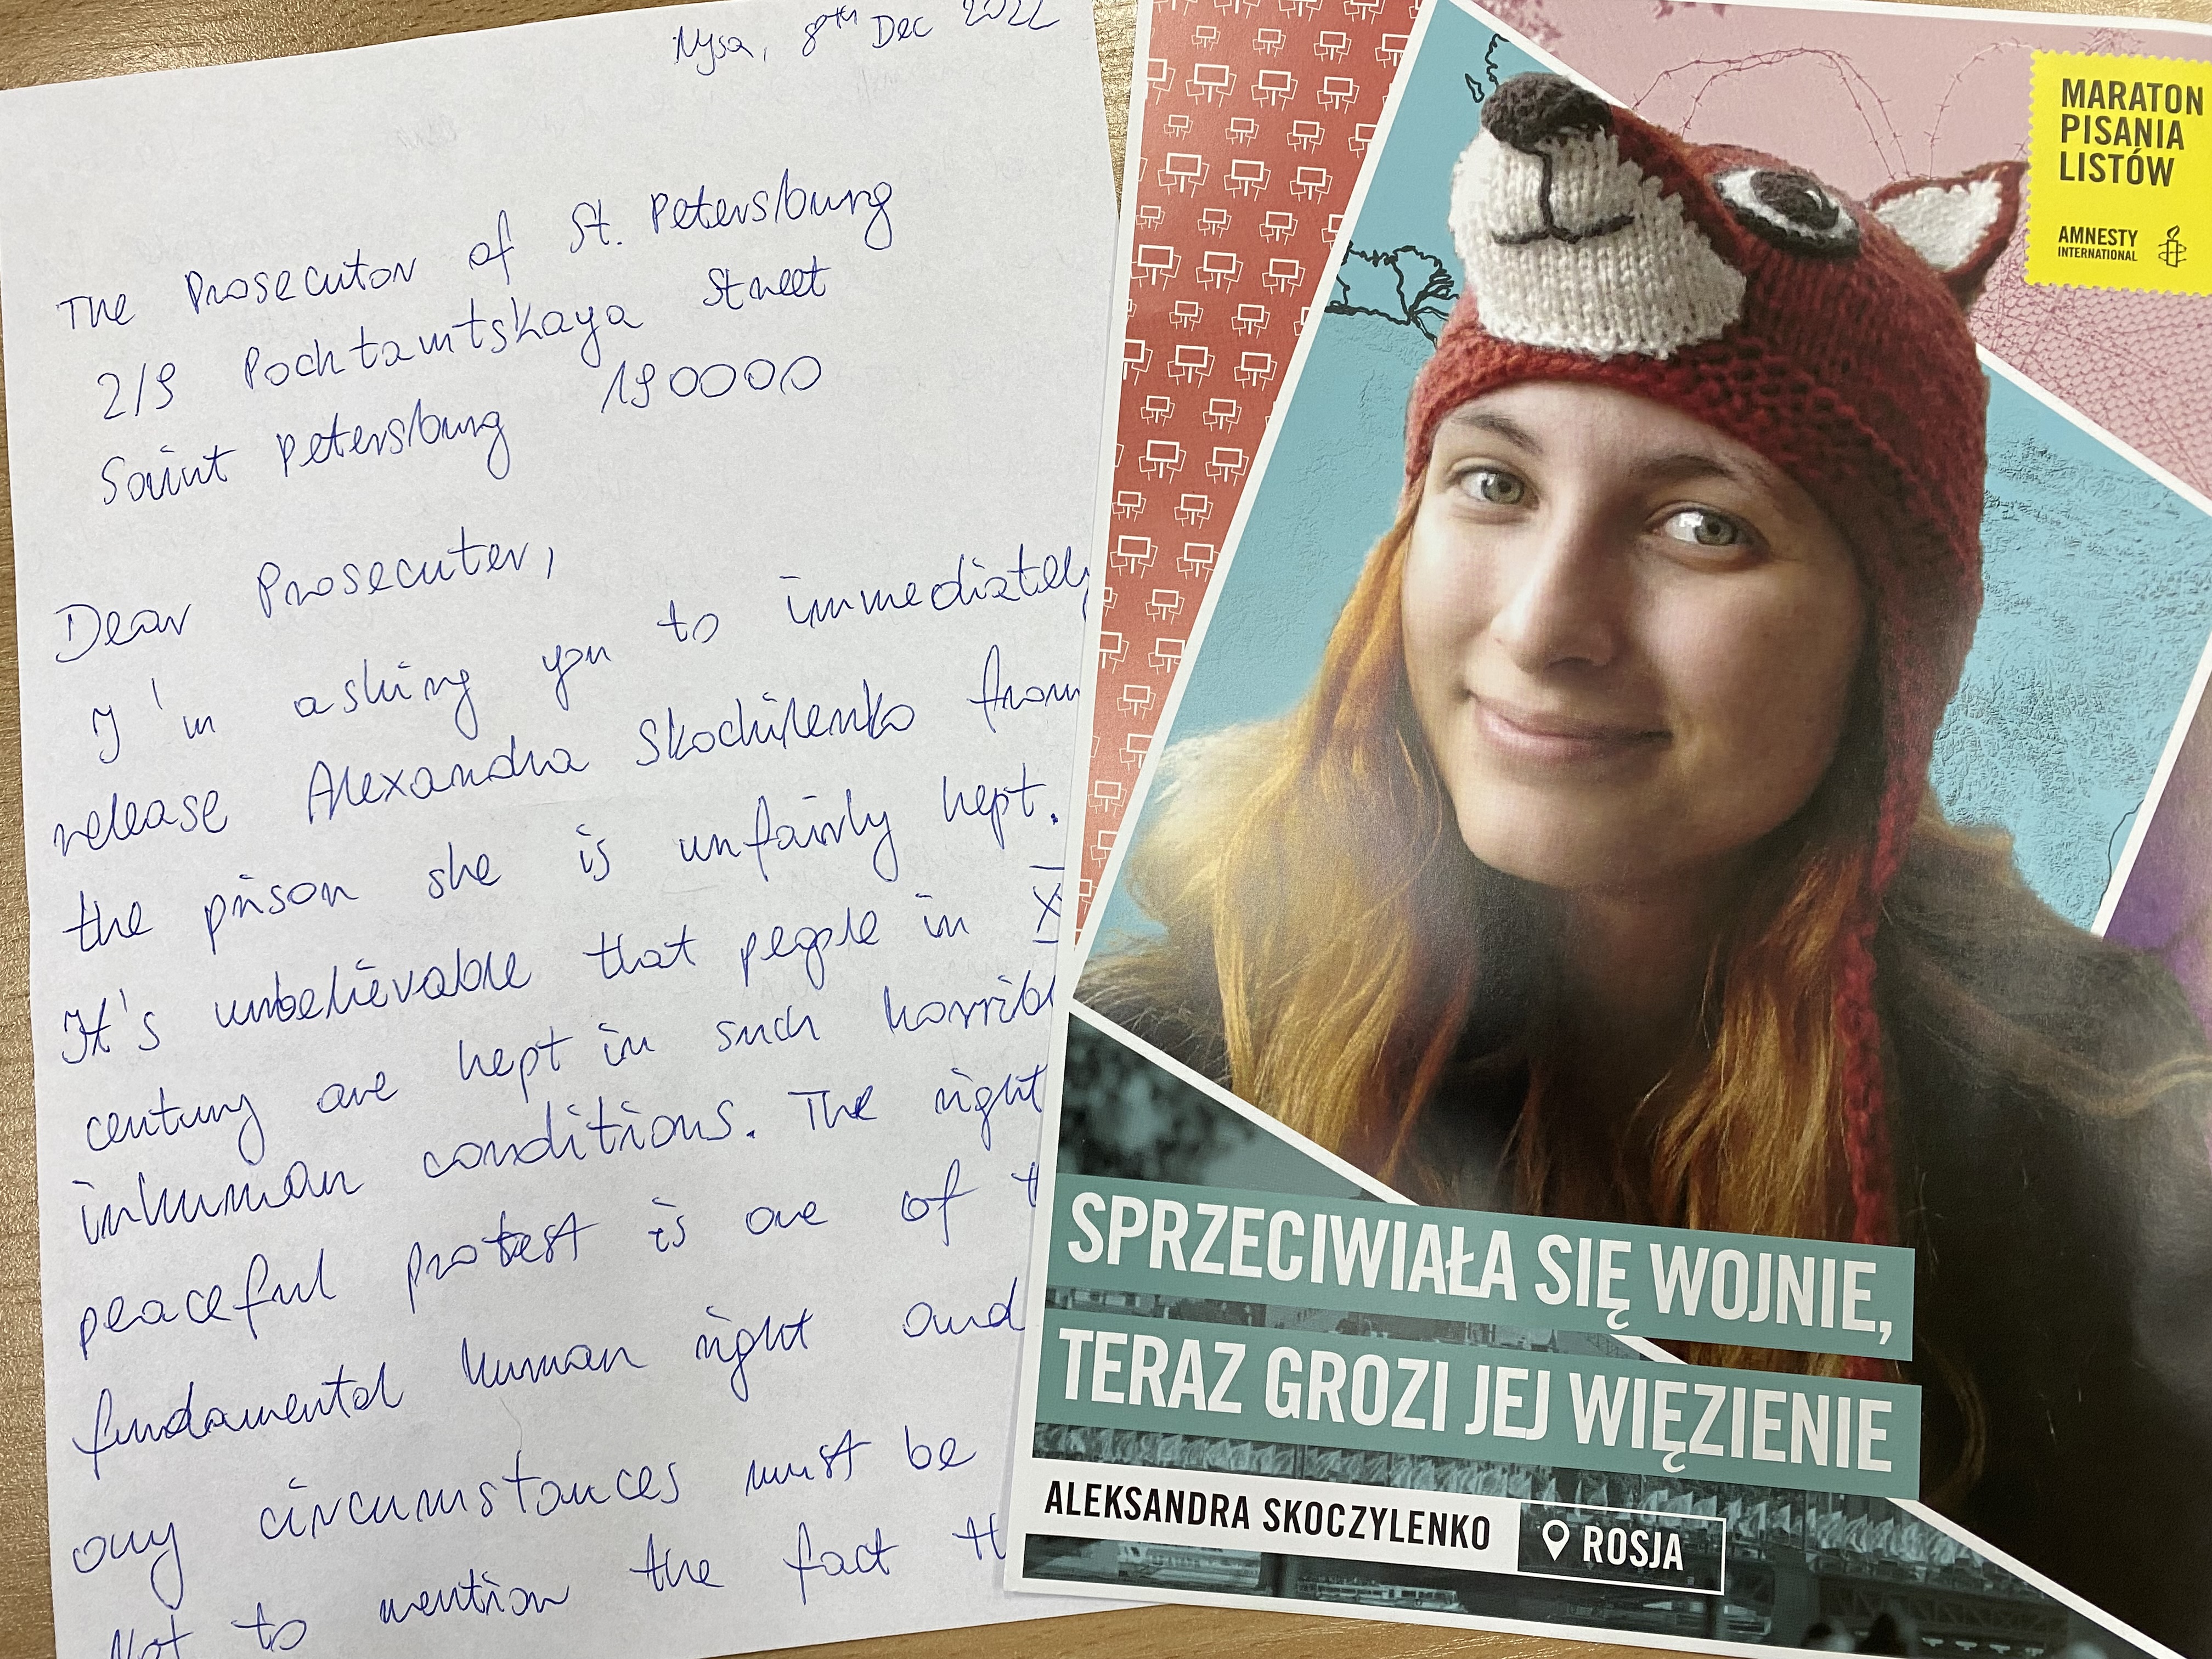 Nysa, 8th Dec 2022
The Prosecutor of St. Petersburg
2/9 Pochtamtskaya Street
Saint Petersburg 190000
Dear Prosecuter,
I'm asking you to immediately
release Alexandra Skochilenko from
the prison she is unfairly kept.
It's unbelievable that people in
century are kept in such horribl
inhuman conditions. The right
peaceful protest is one of t
fundamental human right and
any circumstances must be
Not to mention the fact th
MARATON
PISANIA
LISTÓW
AMNESTY
INTERNATIONAL
SPRZECIWIAŁA SIĘ WOJNIE,
TERAZ GROZI JEJ WIĘZIENIE
ALEKSANDRA SKOCZYLENKO
ROSJA